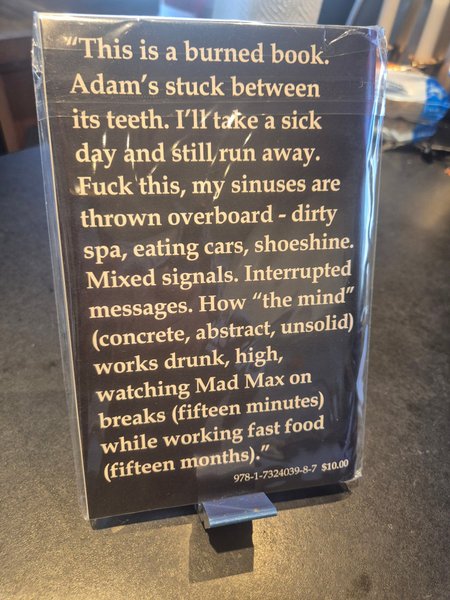 "This is a burned book.
Adam's stuck between
its teeth. I'll take a sick
day and still run away.
Fuck this, my sinuses are
thrown overboard - dirty
spa, eating cars, shoeshine.
Mixed signals. Interrupted
messages. How "the mind"
(concrete, abstract, unsolid)
works drunk, high,
watching Mad Max on
breaks (fifteen minutes)
while working fast food
(fifteen months)."
978-1-7324039-8-7 $10.00